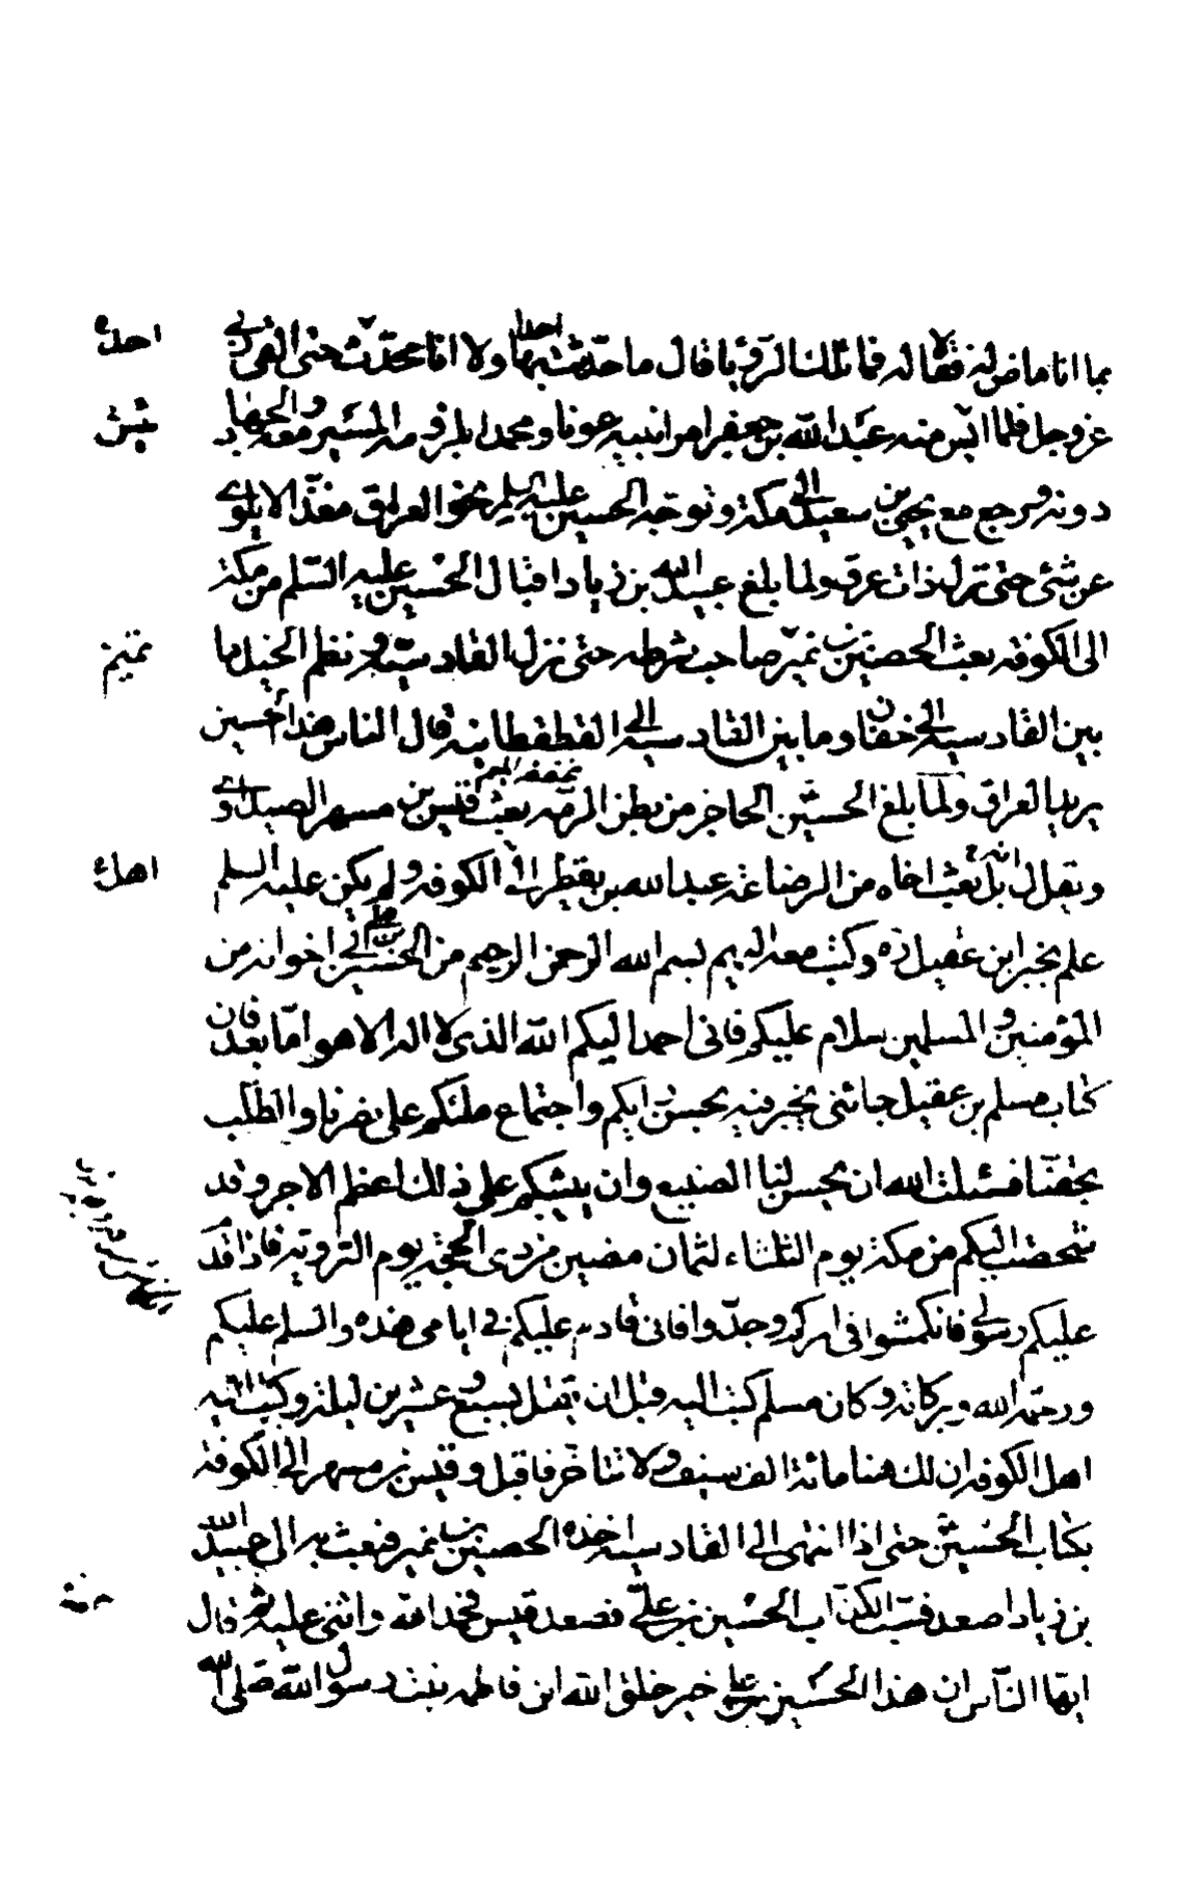 بما انا ماض له فقالا له فما تلك الرؤيا قال ما حدثت احدا بها ولا انا محدث حتى القى ربي
عز وجل فلما ايس منه عبد الله بن جعفر امر ابنيه عونا ومحمدا بلزومه والمسير معه والجهاد
دونه ورجع مع يحيى بن سعيد الى مكة وتوجه الحسين عليه السلم نحو العراق مغذا لا يلوي
عن شئ حتى نزل ذات عرق ولما بلغ عبيد الله بن زياد اقبال الحسين عليه السلم من مكة
الى الكوفه بعث الحصين بن نمير صاحب شرطه حتى نزل القادسية ونظم الخيل ما
بين القادسية الى خفان وما بين القادسية الى القطقطانه قال الناس هذا الحسين
يريد العراق ولما بلغ الحسين الحاجز من بطن الرمه بعث قيس بن مسهر الصيداوي
ويقال انه بل بعث اخاه من الرضاعة عبد الله بن يقطر الى الكوفه ولم يكن عليه السلم
علم بخبر ابن عقيل ره وكتب معه اليهم بسم الله الرحمن الرحيم من الحسين بن علي الى اخوانه من
المؤمنين والمسلمين سلام عليكم فانى احمد اليكم الله الذى لا اله الا هو اما بعد فان
كتاب مسلم بن عقيل جائنى يخبر فيه بحسن رايكم واجتماع ملئكم على نصرنا والطلب
بحقنا فسئلت الله ان يحسن لنا الصنيع وان يثيبكم على ذلك اعظم الاجر وقد
شخصت اليكم من مكة يوم الثلثاء لثمان مضين من ذى الحجة يوم التروية فاذا قدم
عليكم رسولي فانكمشوا فى امركم وجدوا فانى قادم عليكم في ايامى هذه والسلم عليكم
ورحمة الله وبركاته وكان مسلم كتب اليه قبل ان يقتل بسبع وعشرين ليلة وكتب اليه
اهل الكوفه ان لك هنا مائة الف سيف ولا تتاخر فاقبل وقيس بن مسهر الى الكوفة
بكتاب الحسين حتى اذا انتهى الى القادسية اخذه الحصين بن نمير فبعث به الى عبيد الله
بن زياد اصعد فسب الكذاب الحسين بن علي فصعد قيس فحمد الله واثنى عليه ثم قال
ايها الناس ان هذا الحسين بن علي خير خلق الله ابن فاطمه بنت رسول الله صلى الله